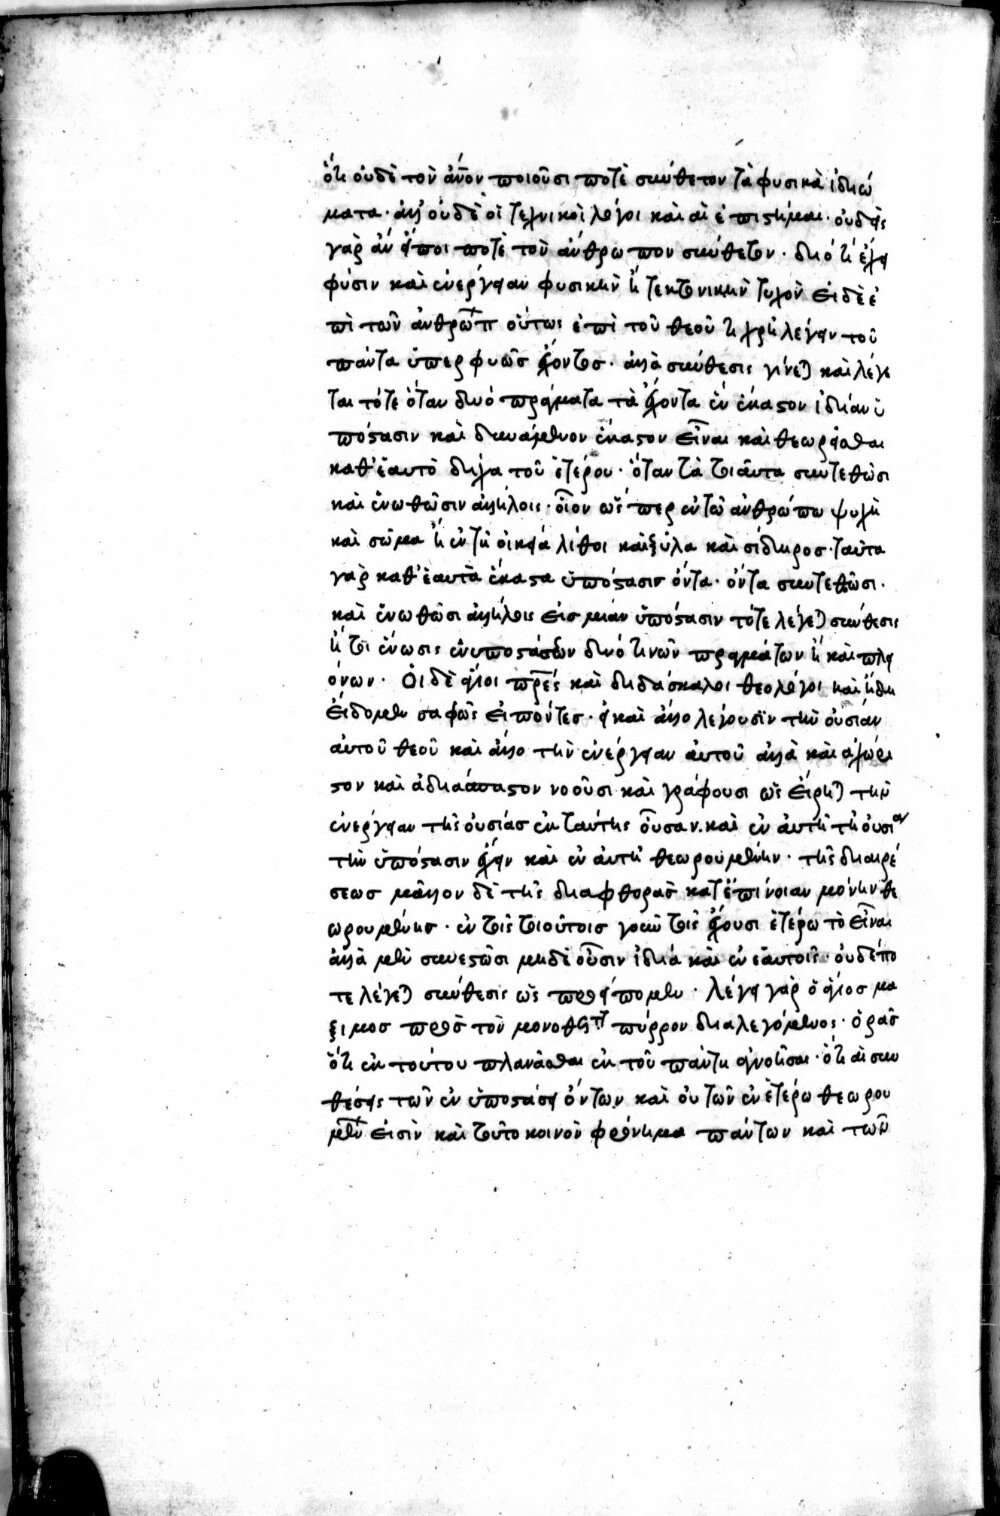 ὅτι οὐδὲ τὸν ἄνον ποιοῦσι ποτὲ σύνθετον τὰ φυσικὰ ἰδιώ
ματα· ἀλλ' οὐδὲ οἱ τεχνικοὶ λόγοι καὶ αἱ ἐπιστῆμαι· οὐδεὶς
γὰρ ἂν εἴποι ποτὲ τὸν ἄνθρωπον σύνθετον· διότι ἔχει
φύσιν καὶ ἐνέργειαν φυσικὴν ἢ τεκτονικὴν τυχὸν εἰ δὲ ἐ
πὶ τῶν ἀνθρώπ οὕτως ἐπὶ τοῦ θεοῦ τί χρὴ λέγειν τοῦ
πάντα ὑπερφυῶς ἔχοντος· ἀλλὰ σύνθεσις γίνεται καὶ λέγε
ται τότε ὅταν δύο πράγματα τὰ ἔχοντα ἓν ἕκαστον ἰδίαν ὑ
πόστασιν καὶ δυνάμενον ἕκαστον εἶναι καὶ θεωρεῖσθαι
καθ' ἑαυτὸ δίχα τοῦ ἑτέρου· ὅταν τὰ τοιαῦτα συντεθῶσι
καὶ ἑνωθῶσιν ἀλλήλοις· οἷον ὥσπερ ἐν τῶ ἀνθρώπω ψυχὴ
καὶ σῶμα ἢ ἐν τῇ οἰκία λίθοι καὶ ξύλα καὶ σίδηρος· ταῦτα
γὰρ καθ' ἑαυτὰ ἕκαστα ὑπόστασις ὄντα· ὄντα συντεθῶσι·
καὶ ἑνωθῶσι ἀλλήλοις εἰς μίαν ὑπόστασιν τότε λέγεται σύνθεσις
ἤτοι ἕνωσις ἐνυποστάτων δυό τινῶν πραγμάτων ἢ καὶ πλει
όνων· Οἱ δὲ ἅγιοι πρες καὶ διδάσκαλοι θεολόγοι καὶ ἤδη
εἴδομεν σαφῶς εἰπόντες· εἰ καὶ ἄλλο λέγουσϊν τὴν οὐσίαν
αὐτοῦ θεοῦ καὶ ἄλλο τὴν ἐνέργειαν αὐτοῦ ἀλλὰ καὶ ἀχώρι
στον καὶ ἀδιάσπαστον νοοῦσι καὶ γράφουσι ὡς εἴρηται τὴν
ἐνέργειαν τῆς οὐσίας ἐκ ταύτης οὖσαν. καὶ ἐν αὐτῇ τῇ οὐσία
τὴν ὑπόστασιν ἔχειν καὶ ἐν αὐτῇ θεωρουμένην· τῆς διαιρέ
σεως μᾶλλον δὲ τῆς διαφθορᾶς κατ' ἐπίνοιαν μόνην θε
ωρουμένης· ἐν τοῖς τοιούτοις γοῦν τοῖς ἔχουσι ἑτέρω τὸ εἶναι
ἀλλὰ μὲν συνεστῶσι μηδὲ οὖσιν ἰδία καὶ ἐν ἑαυτοῖς· οὐδέπο
τε λέγεται σύνθεσις ὡς προείπομεν· Λέγει γὰρ ὁ ἅγιος μα
ξιμος πρὸς τὸν μονοθελητ πύρρον διαλεγόμενος· ὁρᾶς
ὅτι ἐκ τούτου πλανᾶσθαι ἐκ τοῦ πάντη ἀγνοῆσαι· ὅτι αἱ συν
θέσεις τῶν ἐν ὑποστάσει ὄντων καὶ οὐ τῶν ἐν ἑτέρω θεωρου
μένων εἰσὶν καὶ τοῦτο κοινὸν φρόνημα πάντων καὶ τῶν